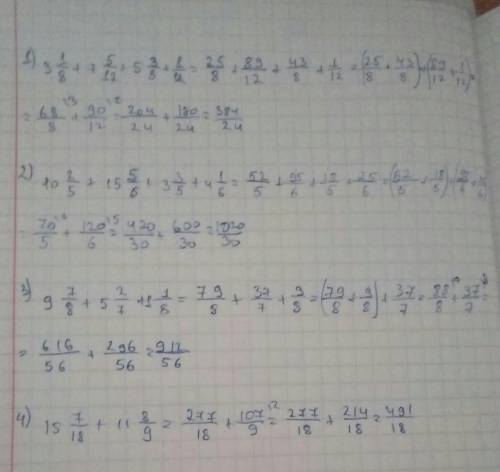 1) 3 1/8 + 7 5/12 + 5 3/8 + 1/12 = 25/8 + 89/12 + 43/8 + 1/12 = (25/8 + 43/8) + (89/12 + 1/12) =
= 68/8 + 90/12 = 204/24 + 180/24 = 384/24
2) 10 2/5 + 15 5/6 + 3 3/5 + 4 1/6 = 52/5 + 95/6 + 18/5 + 25/6 = (52/5 + 18/5) +
= 70/5 + 120/6 = 420/30 + 600/30 = 1020/30
3) 9 7/8 + 5 2/7 + 1 1/8 = 79/8 + 37/7 + 9/8 = (79/8 + 9/8) + 37/7 = 88/8 + 37/7 =
= 616/56 + 296/56 = 912/56
4) 15 7/18 + 11 8/9 = 277/18 + 107/9 = 277/18 + 214/18 = 491/18